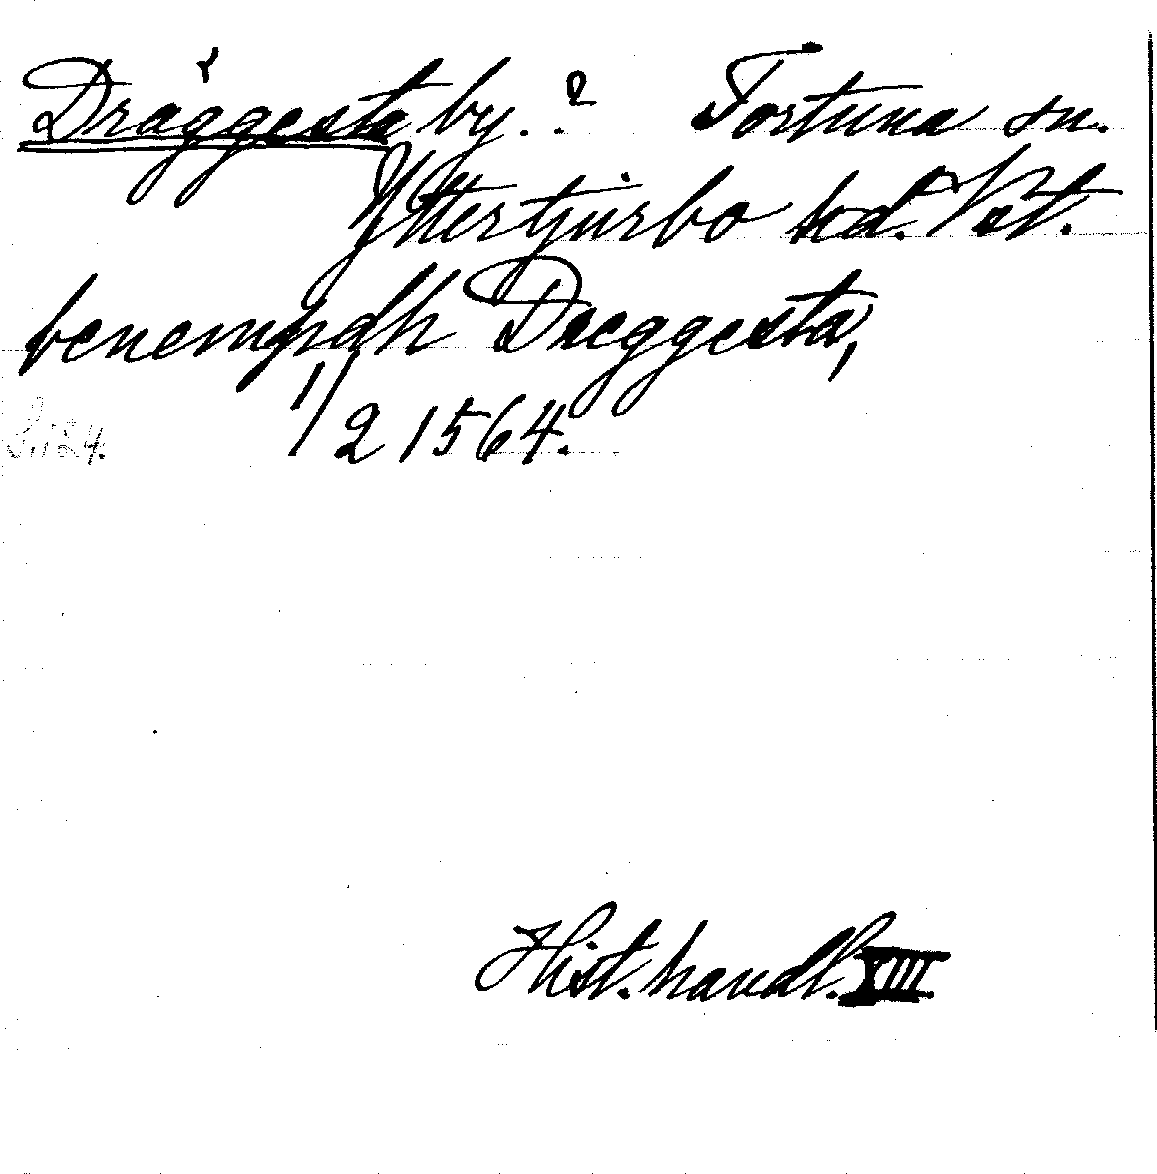 Dräggesta by. ? Fortuna sn.
Yttertjurbo hd. Vst.
benempdh Dræggesta,
1/2 1564.
S. 124.
Hist. handl. XIII.